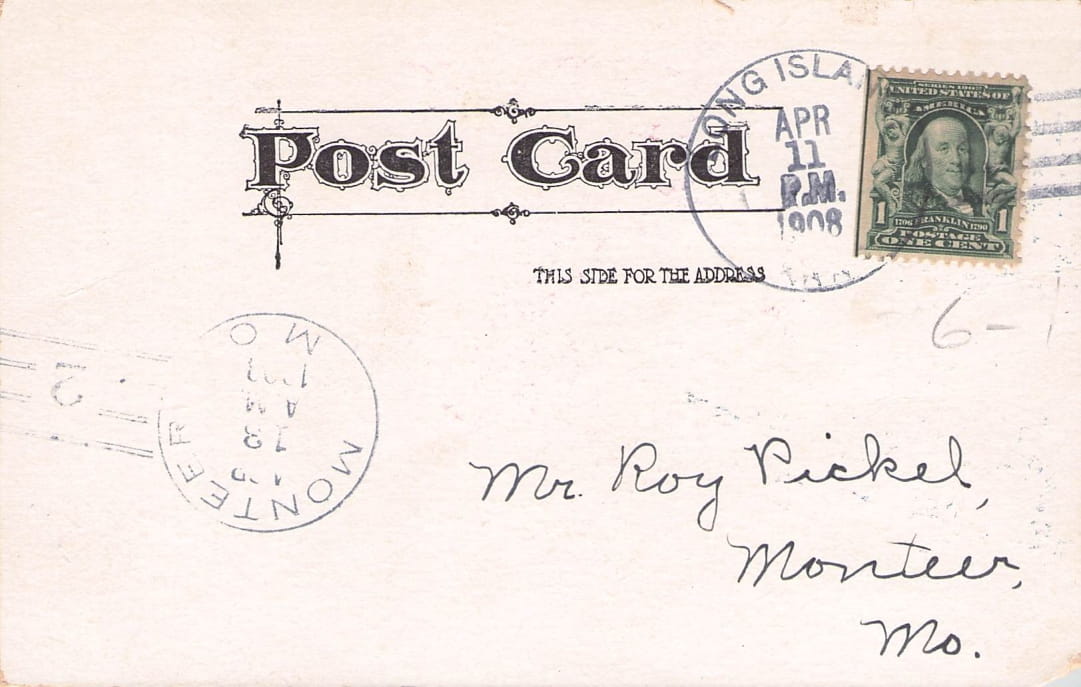 Post Card
THIS SIDE FOR THE ADDRESS
ONG ISLA
APR
11
P.M.
1908
SERIES 1902
UNITED STATES OF
AMERICA
1706 FRANKLIN 1790
1 1
POSTAGE
ONE CENT
6-1
MONTEER
MO
2
Mr. Roy Pickel,
Monteer,
Mo.